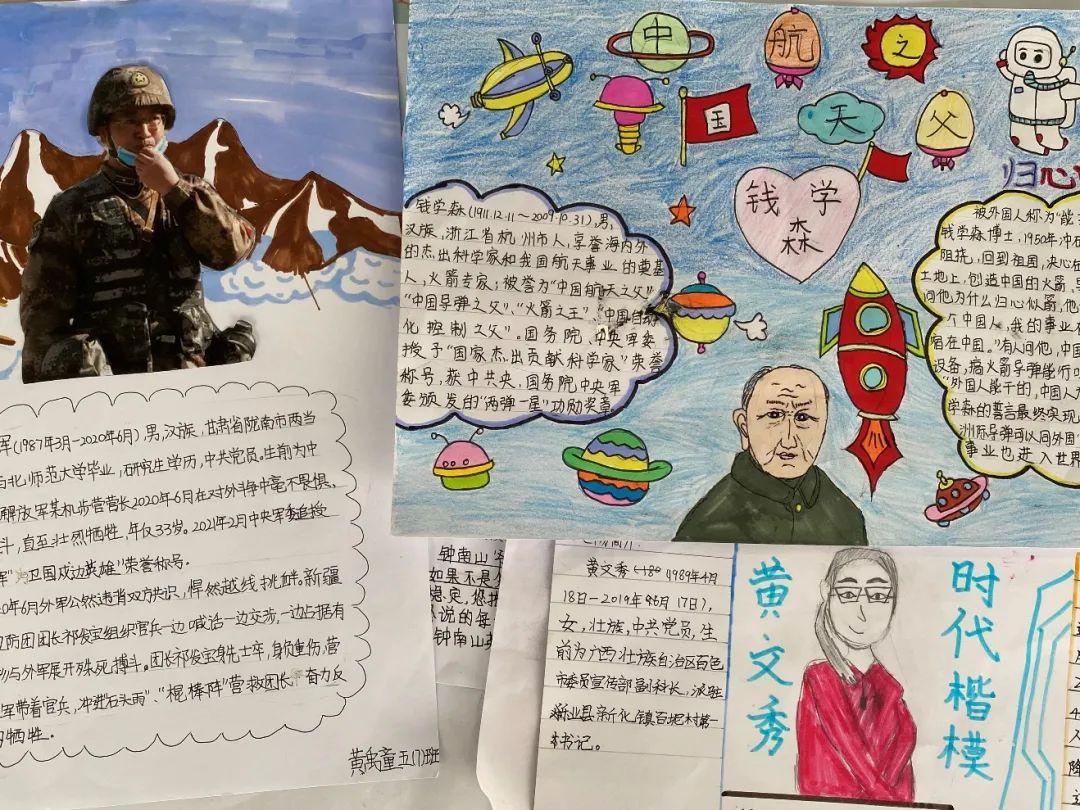 中
航
之
国
天
父
钱学
森
归心
钱学森(1911.12.11～2009.10.31),男,
汉族,浙江省杭州市人,享誉海内外
的杰出科学家和我国航天事业的奠基
人,火箭专家;被誉为“中国航天之父”
“中国导弹之父”、“火箭之王”、“中国自动
化控制之父”。国务院、中央军委
授予“国家杰出贡献科学家”荣誉
称号,获中共央、国务院中央军
委颁发的“两弹一星”功勋奖章
被外国人称为“
钱学森博士,1950年冲
阻挠,回到祖国,决心在
土地上,创造中国的火箭、
问他为什么归心似箭,他
个中国人,我的事业在
唱在中国。”有人问他,中国
设备,搞火箭导弹能行吗
“外国人能干的,中国人
学森的誓言最终实现
洲际导弹可以同外国
事业也进入世界
军(1987年3月-2020年6月)男,汉族,甘肃省陇南市两当
北师范大学毕业,研究生学历,中共党员。生前为中
解放军某机步营营长2020年6月在对外斗争中毫不畏惧、
斗,直至壮烈牺牲,年仅33岁。2021年2月中央军委追授
军“卫国戍边英雄”荣誉称号。
0年6月外军公然违背双方共识,悍然越线挑衅,新疆
防团团长祁发宝组织官兵一边喊话一边交涉,一边占据有
与外军展开殊死搏斗。团长祁发宝身先士卒,身负重伤,营
军带着官兵,冲进“石头雨”、“棍棒阵”营救团长。奋力反
牺牲。
黄禹童五(1)班
钟南山
如果不是
稳定,您
说的每
钟南山
黄文秀(1989年4月
18日-2019年6月17日),
女,壮族,中共党员,生
前为广西壮族自治区百色
市委员宣传部副科长,派驻
乐业县新化镇百坭村第一
书记。
黄文秀
时代楷模